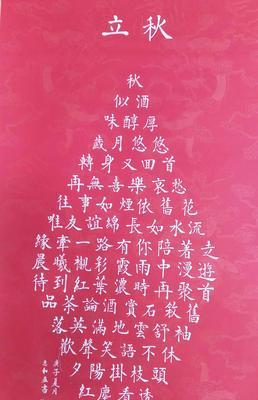 立秋
秋
似酒
味醇厚
歲月悠悠
轉身又回首
再無喜樂哀愁
往事如煙依舊花
唯友誼綿長如水流
緣牽一路有你陪著走
晨曦襯彩霞雨中漫遊
待到紅葉濃時再聚首
品茶論酒賞石敘舊
落英滿地雲舒袖
歡聲笑語不休
夕陽掛枝頭
紅塵看透
庚子夏月